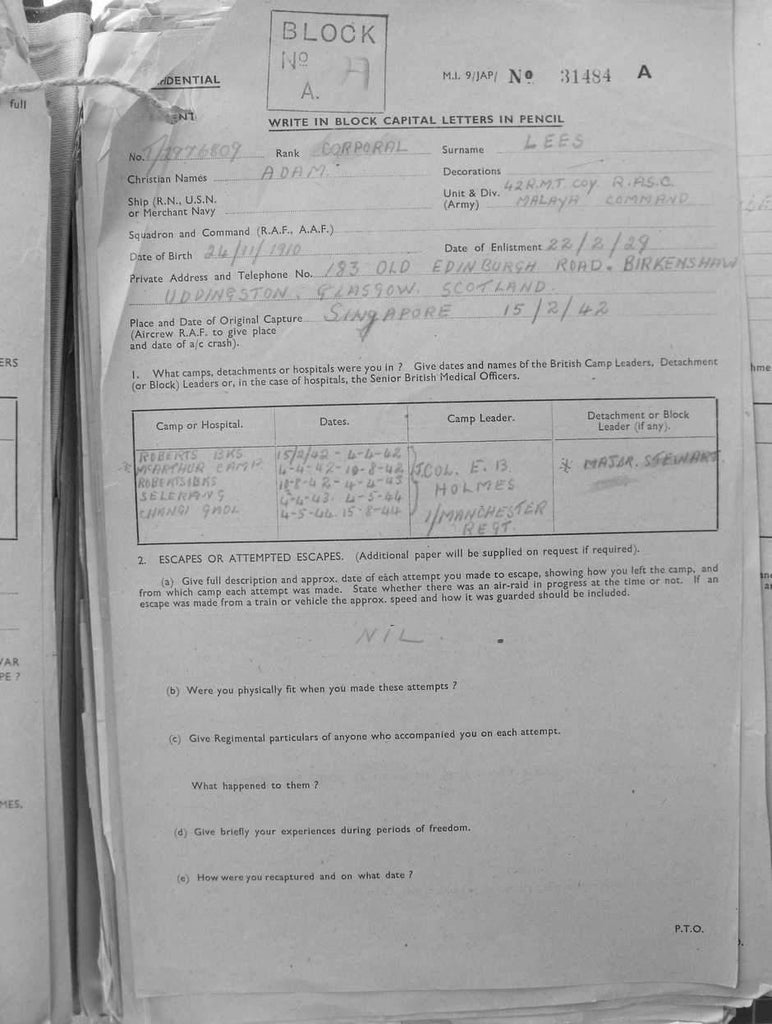 full
BLOCK
No
A. A
DENTIAL
M.I. 9/JAP/ No 31484 A
ENT
WRITE IN BLOCK CAPITAL LETTERS IN PENCIL
No. T/2976809 Rank CORPORAL Surname LEES
Christian Names ADAM. Decorations
Ship (R.N., U.S.N.
or Merchant Navy
Unit & Div. 42 R.M.T COY R.A.S.C.
(Army) MALAYA COMMAND
Squadron and Command (R.A.F., A.A.F.)
Date of Birth 24/11/1910 Date of Enlistment 22/2/29
Private Address and Telephone No. 183 OLD EDINBURGH ROAD. BIRKENSHAW
UDDINGSTON. GLASGOW. SCOTLAND.
Place and Date of Original Capture SINGAPORE 15/2/42
(Aircrew R.A.F. to give place
and date of a/c crash).
1. What camps, detachments or hospitals were you in ? Give dates and names of the British Camp Leaders, Detachment
(or Block) Leaders or, in the case of hospitals, the Senior British Medical Officers.
Camp or Hospital. Dates. Camp Leader. Detachment or Block
Leader (if any).
ROBERTS BKS 15/2/42 - 4-4-42
* McARTHUR CAMP 4-4-42 - 10-8-42 COL. E. B. * MAJOR. STEWART
ROBERTS BKS 10-8-42 - 4-4-43 HOLMES
SELERANG 4-4-43. 4-5-44
CHANGI GAOL 4-5-44 15-8-44 1/MANCHESTER
REGT.
2. ESCAPES OR ATTEMPTED ESCAPES. (Additional paper will be supplied on request if required).
(a) Give full description and approx. date of each attempt you made to escape, showing how you left the camp, and
from which camp each attempt was made. State whether there was an air-raid in progress at the time or not. If an
escape was made from a train or vehicle the approx. speed and how it was guarded should be included.
NIL.
(b) Were you physically fit when you made these attempts ?
(c) Give Regimental particulars of anyone who accompanied you on each attempt.
What happened to them ?
(d) Give briefly your experiences during periods of freedom.
(e) How were you recaptured and on what date ?
P.T.O.